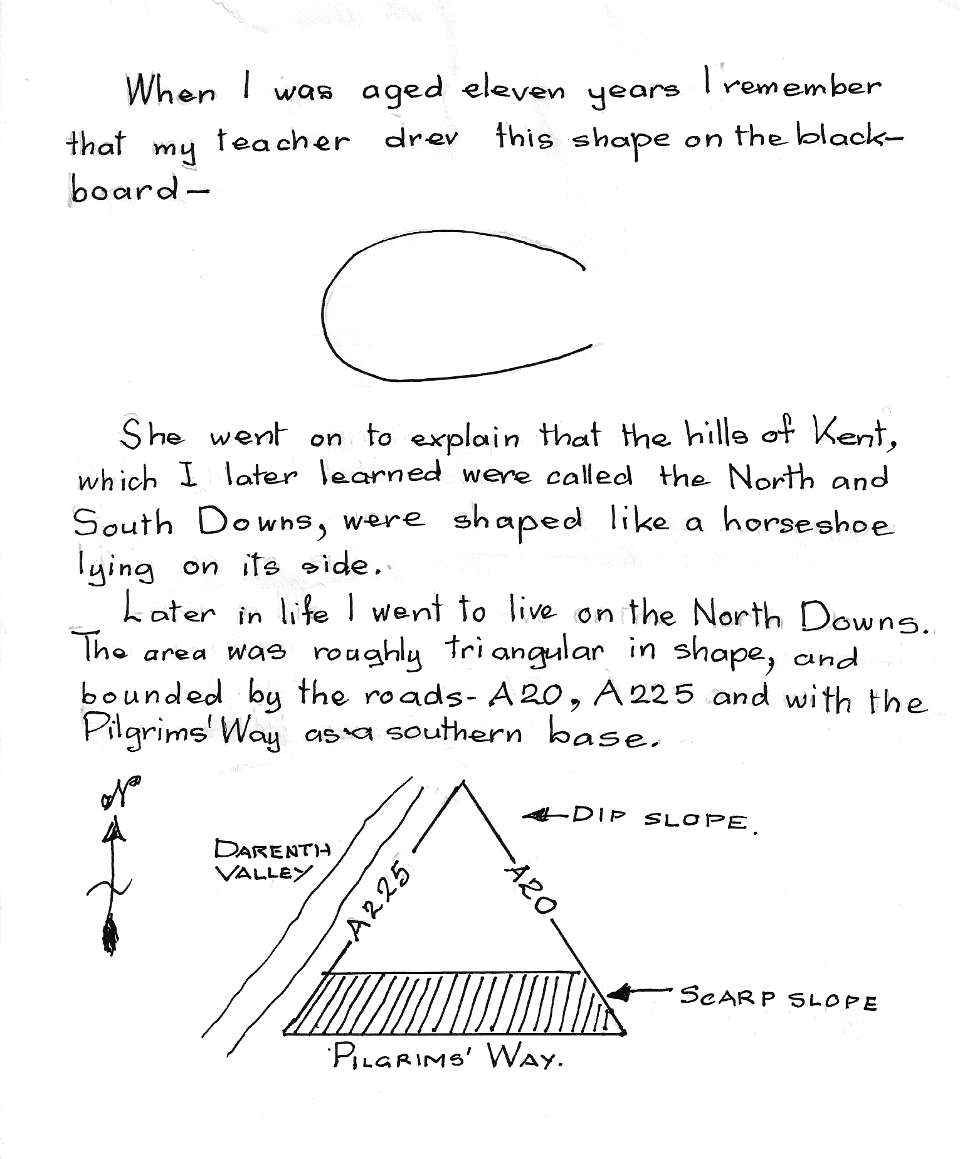 When I was aged eleven years I remember
that my teacher drew this shape on the black-
board-
She went on to explain that the hills of Kent,
which I later learned were called the North and
South Downs, were shaped like a horseshoe
lying on its side.
Later in life I went to live on the North Downs.
The area was roughly triangular in shape, and
bounded by the roads- A20, A225 and with the
Pilgrims' Way as a southern base.
N
DIP SLOPE.
DARENTH
VALLEY
A225
A20
SCARP SLOPE
PILGRIMS' WAY.